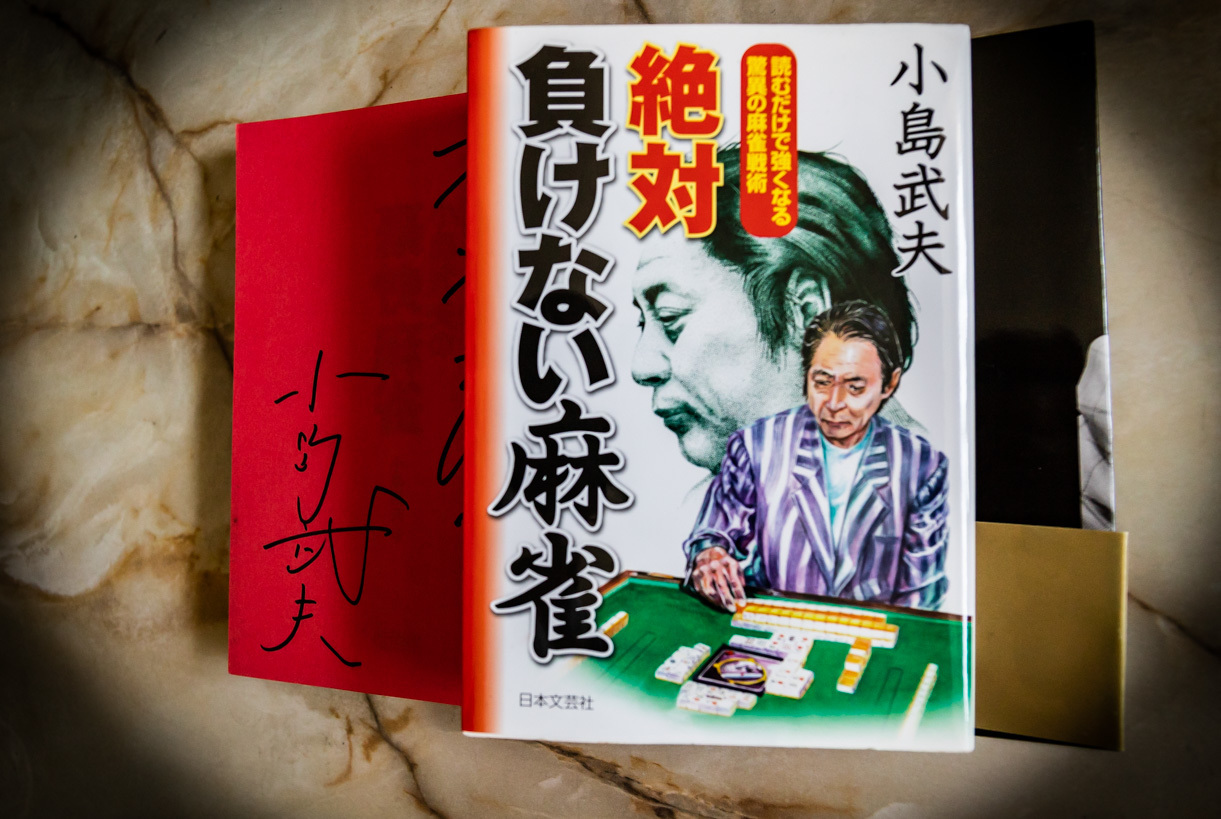 小島武夫
読むだけで強くなる
驚異の麻雀戦術
絶対
負けない麻雀
日本文芸社
小島武夫